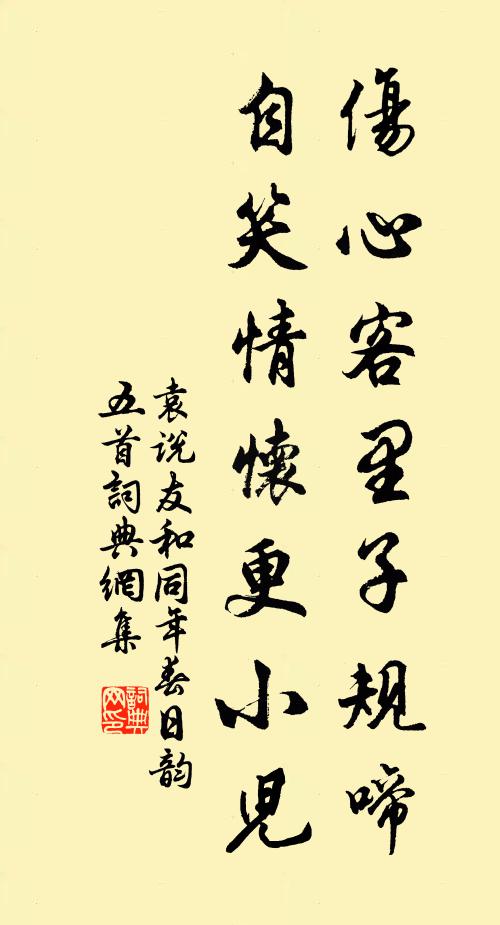 傷心客里子規啼
自笑情懷更小兒
袁说友和同年春日韵
五首詞典網集
詞典网印